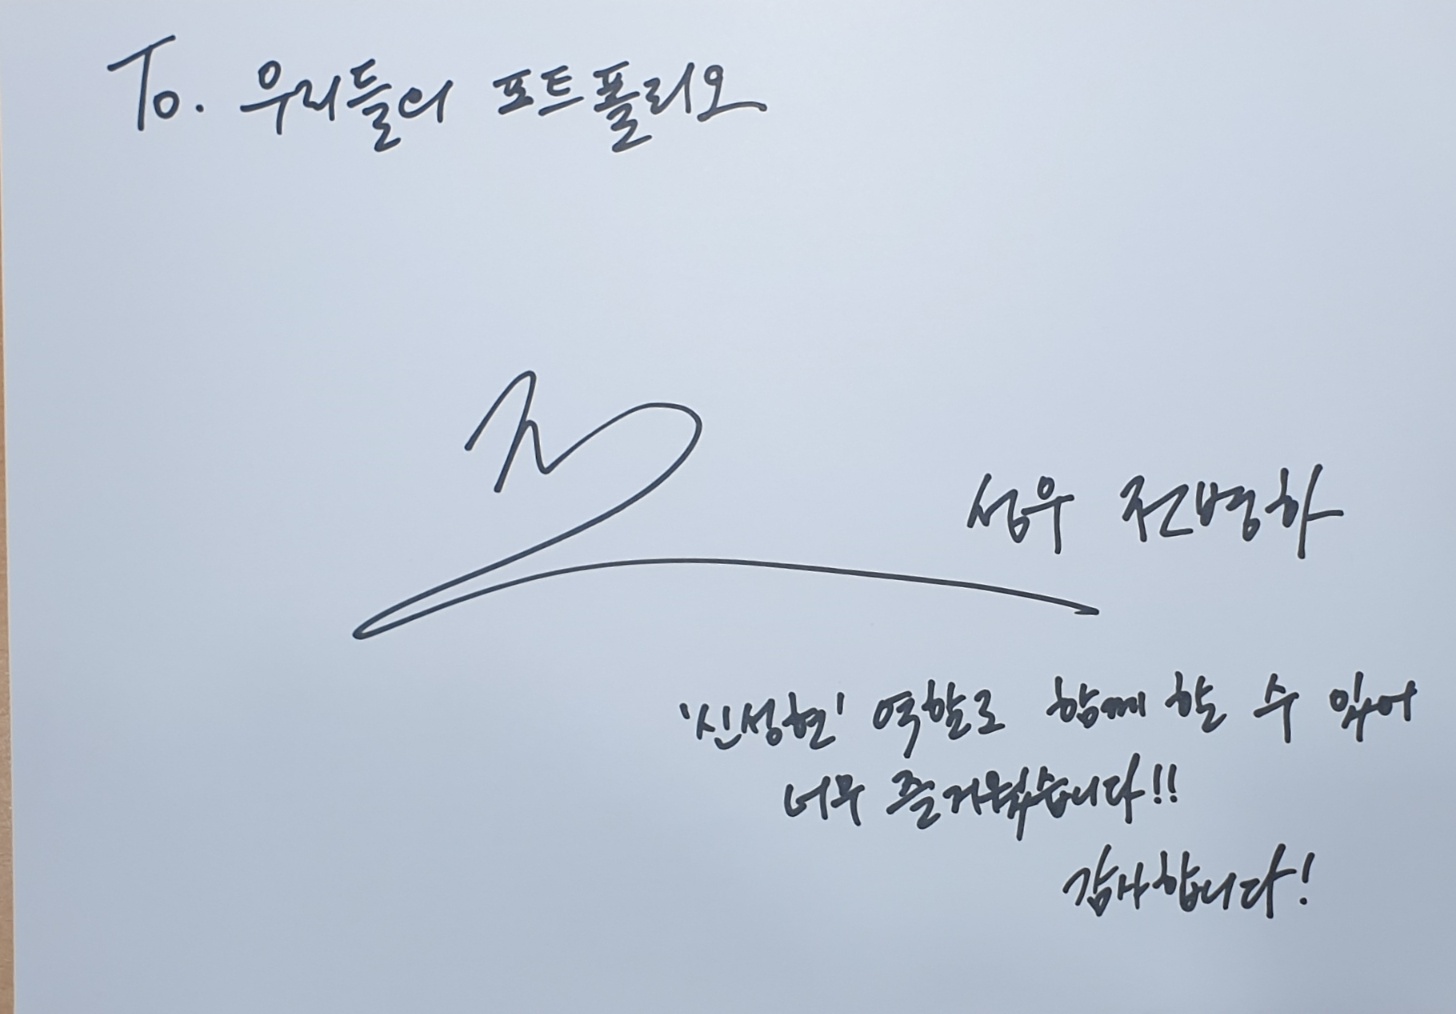 To. 우리들의 포트폴리오
성우 전병하
'신성현' 역할로 함께 할 수 있어
너무 즐거웠습니다!!
감사합니다!